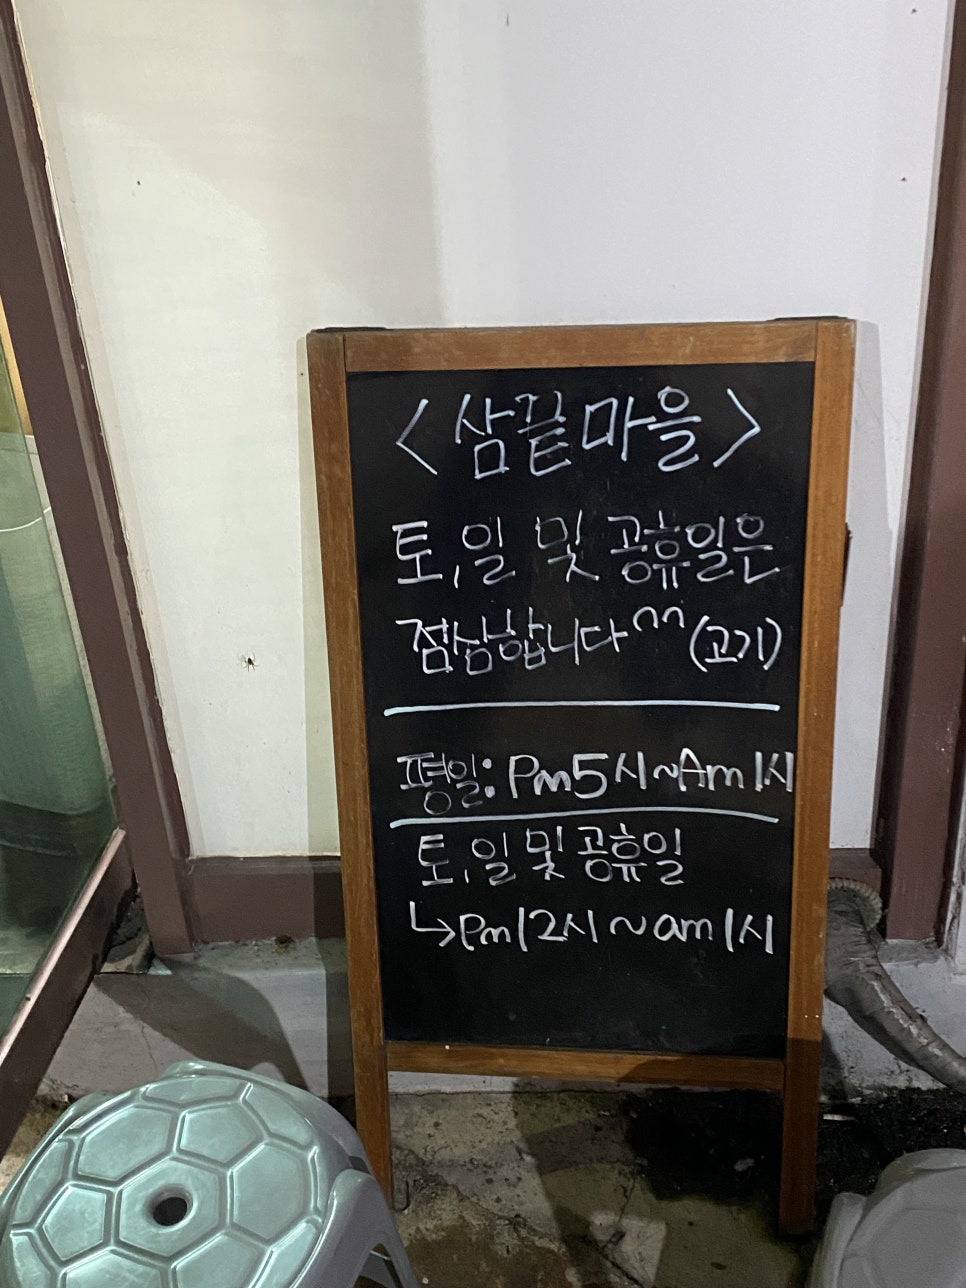 <삼끝마을>
토,일 및 공휴일은
점심합니다^^(고기)
평일: Pm5시~Am1시
토,일 및 공휴일
↳Pm12시~am1시